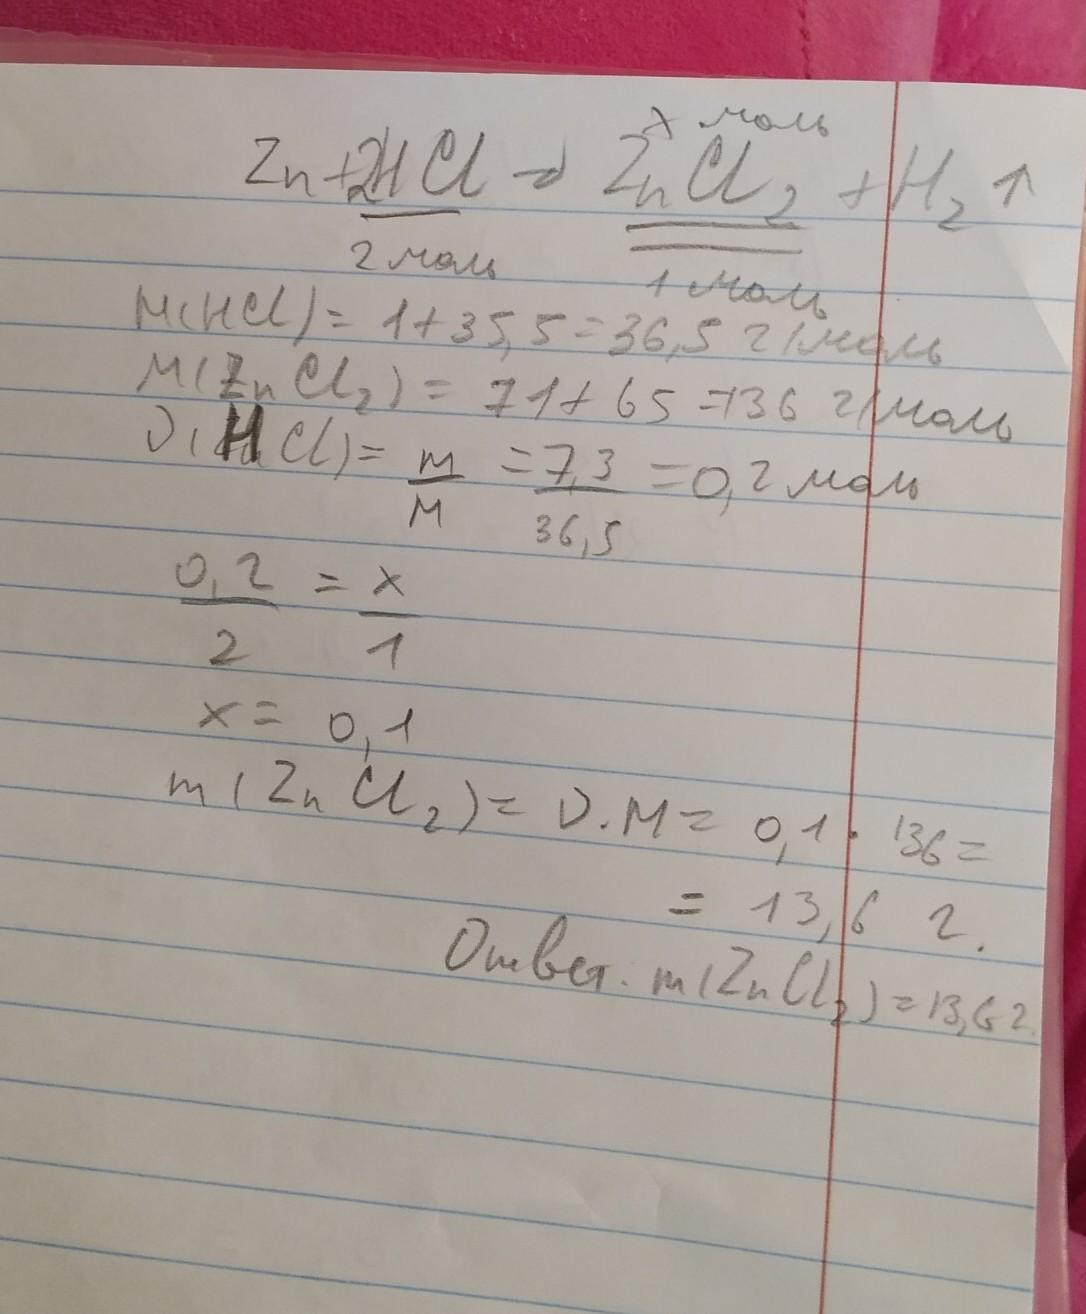 x моль
Zn+2HCl → ZnCl₂ + H₂ ↑
2 моль 1 моль
M(HCl) = 1+35,5=36,5 г/моль
M(ZnCl₂) = 71+65=136 г/моль
ν(HCl)= m/M = 7,3/36,5 = 0,2 моль
0,2/2 = x/1
x = 0,1
m(ZnCl₂)= ν.M = 0,1 · 136=
= 13,6 г.
Ответ. m(ZnCl₂)=13,6 г.